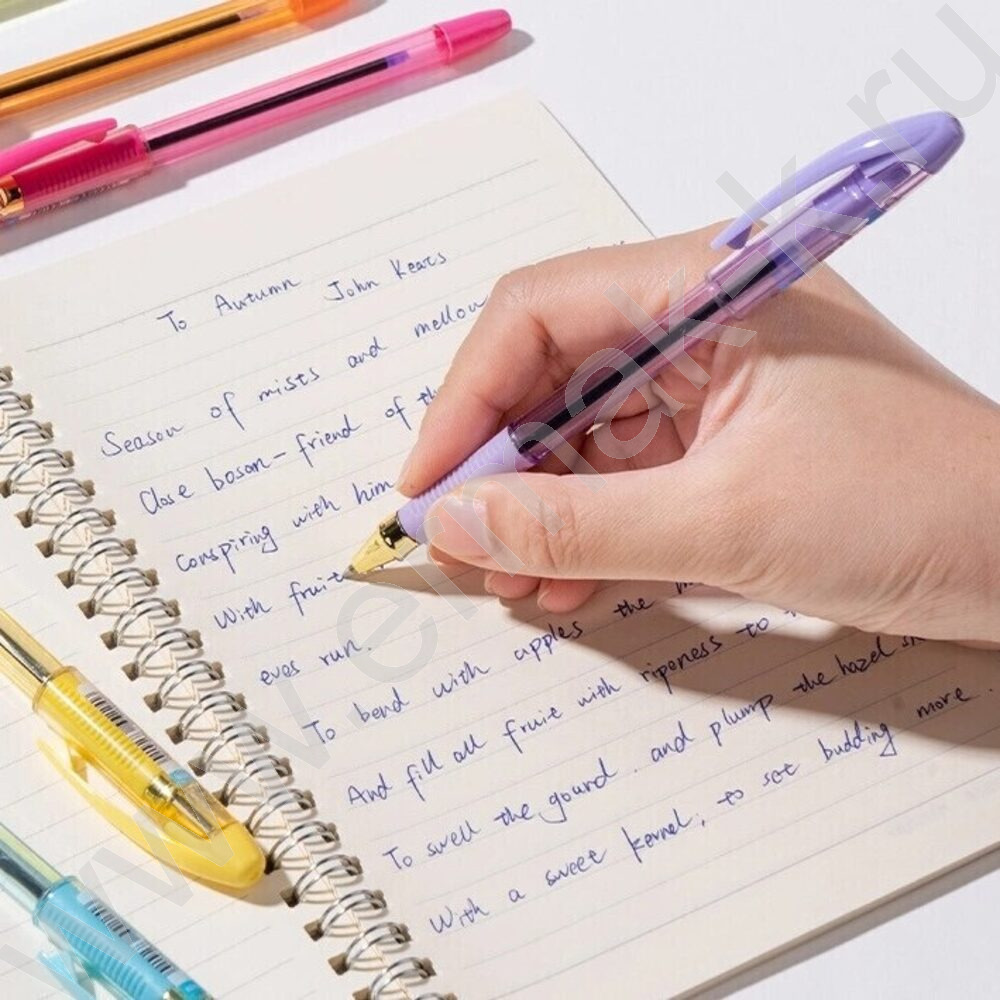 To Autumn
John Keats
Season of mists and mellow
Close boson-friend of the
Conspiring with him
With fruit
eves run.
To bend with apples the
And fill all fruit with ripeness to
To swell the gourd. and plump the hazel
With a sweet kernel; to set budding more.
www.ermak-k.ru